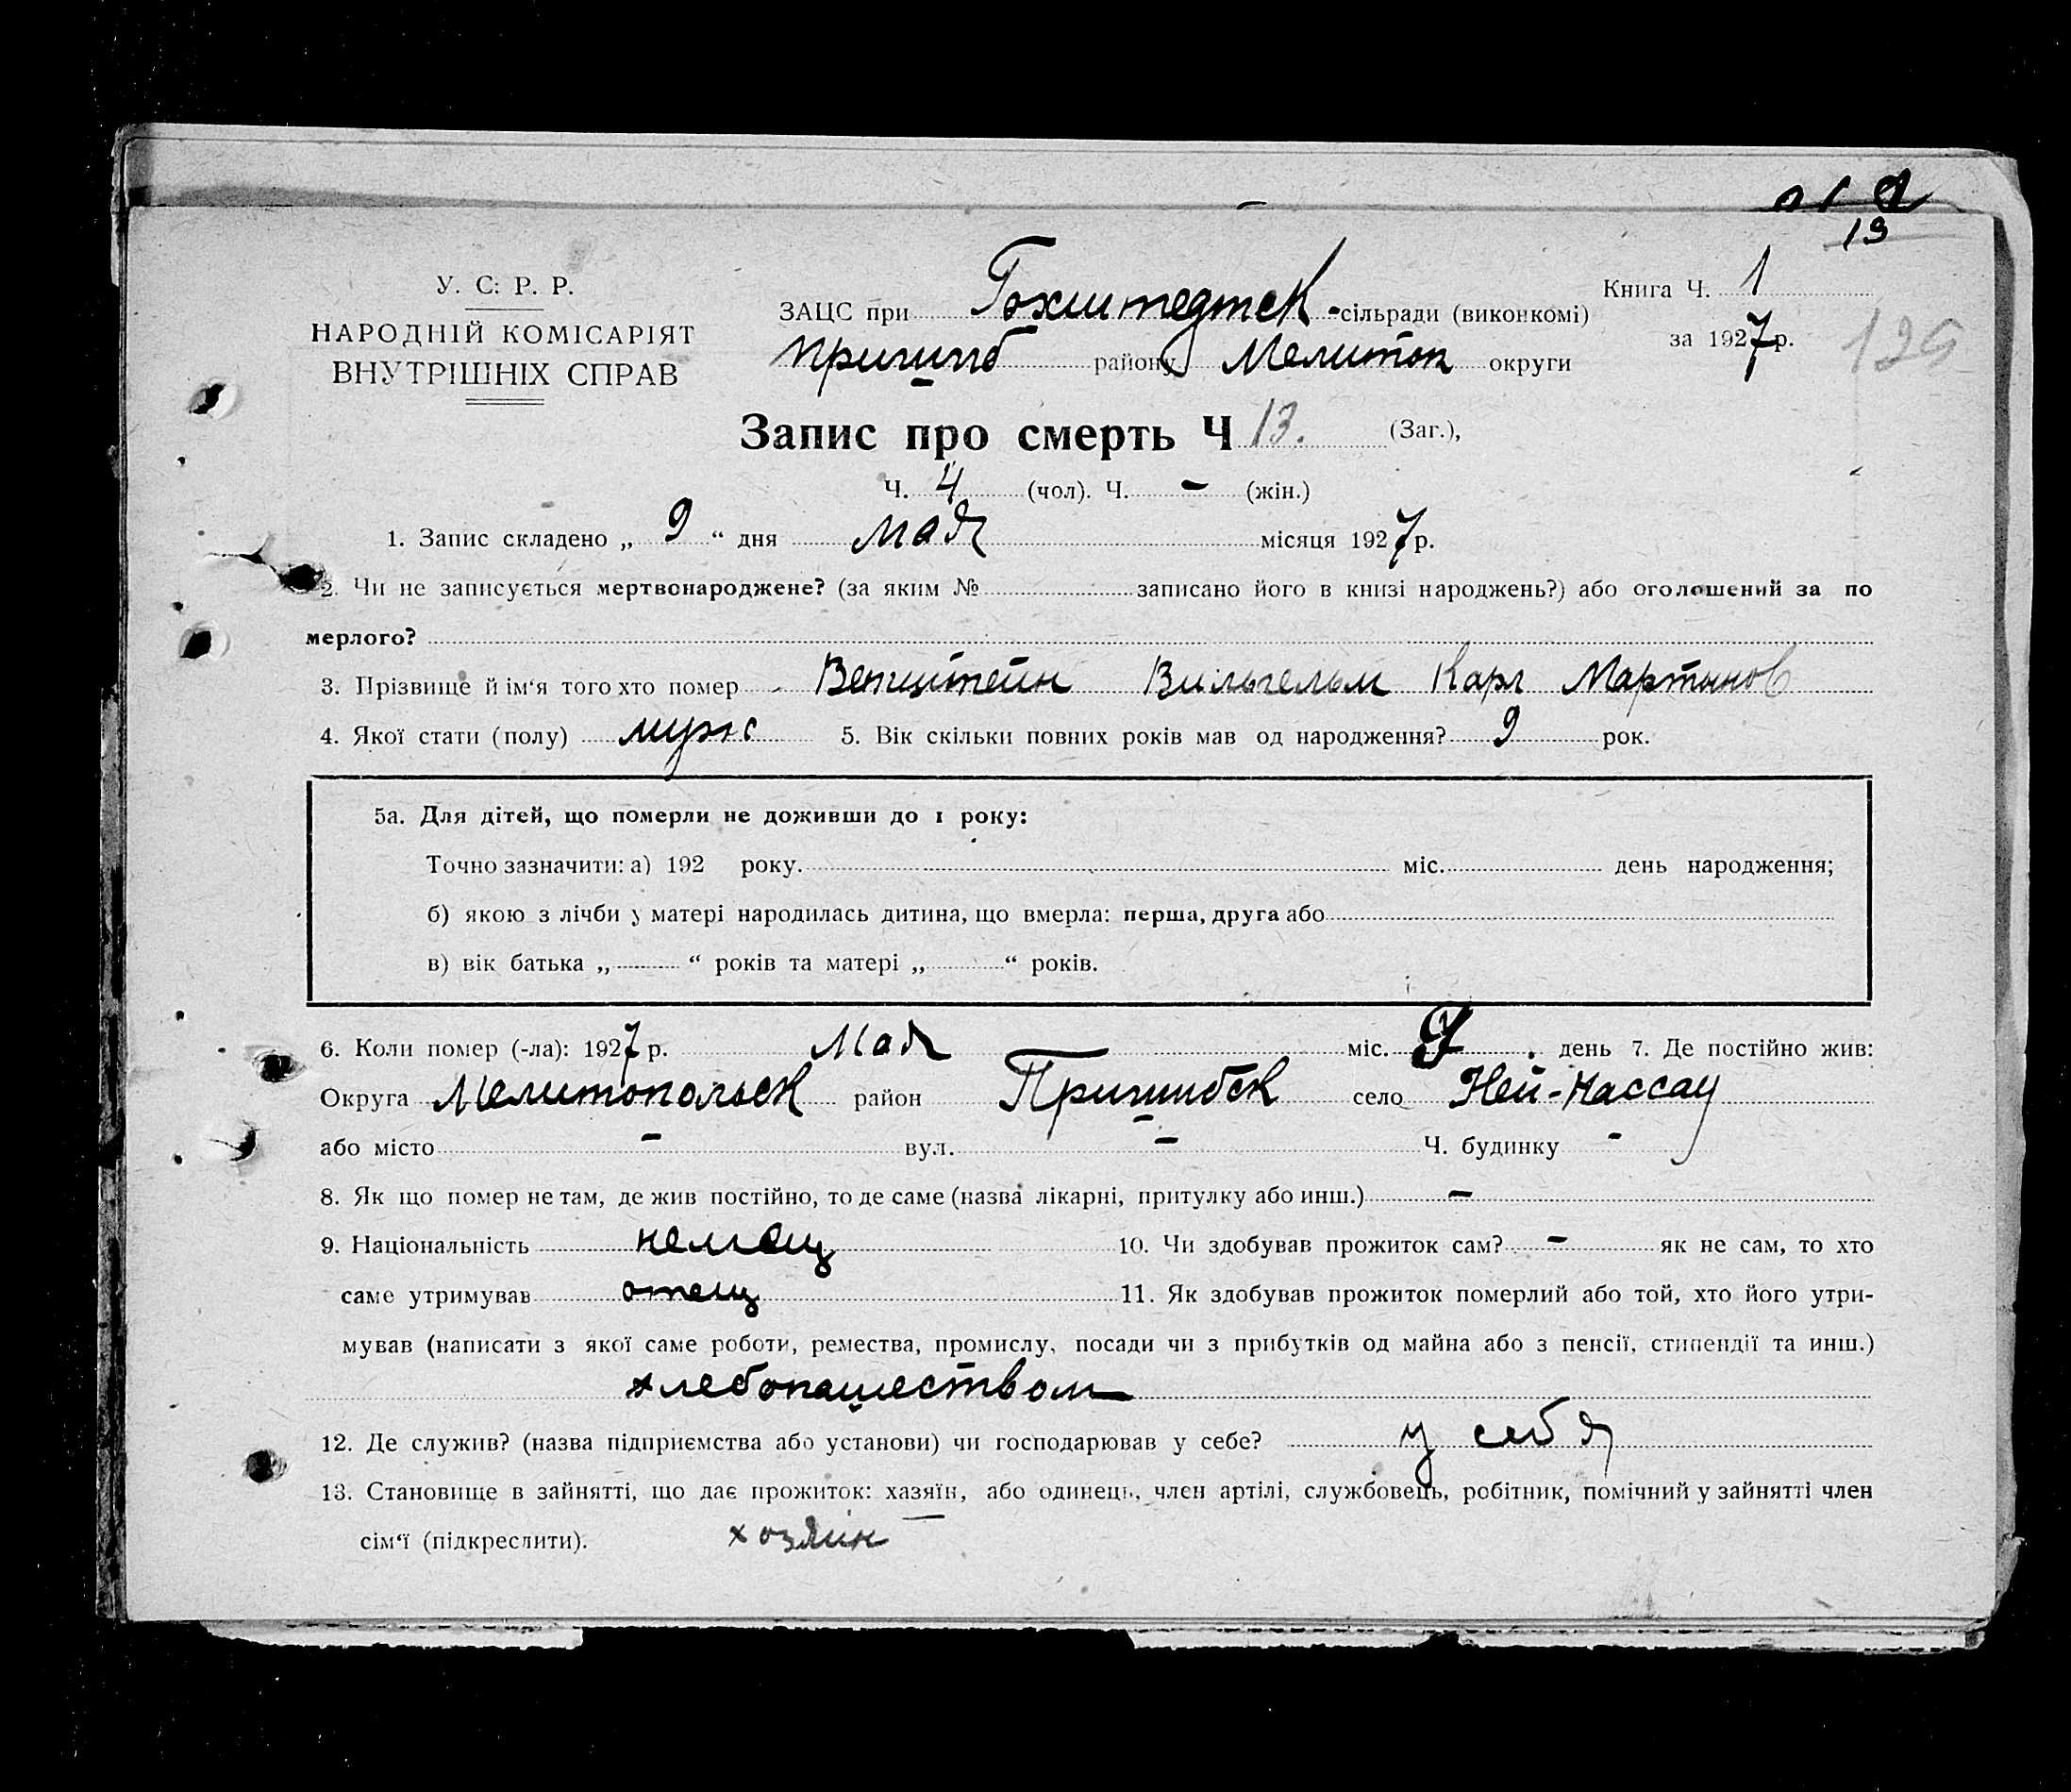 13
У. С. Р. Р.
НАРОДНІЙ КОМІСАРІЯТ
ВНУТРІШНІХ СПРАВ
ЗАЦС при Гохштедтск -сільради (виконкомі)
Пришиб району Мелитоп округи
Книга Ч. 1
за 1927 р.
Запис про смерть Ч 13. (Заг.),
Ч. 4 (чол). Ч. - (жін.)
1. Запис складено „ 9 “ дня мая місяця 1927 р.
2. Чи не записується мертвонароджене? (за яким № записано його в книзі народжень?) або оголошений за по
мерлого?
3. Прізвище й ім‘я того хто помер Венцштейн Вильгельм Карл Мартынов
4. Якої стати (полу) муж 5. Вік скільки повних років мав од народження? 9 рок.
5а. Для дітей, що померли не доживши до 1 року:
Точно зазначити: а) 192 року. міс. день народження;
б) якою з лічби у матері народилась дитина, що вмерла: перша, друга або
в) вік батька „ “ років та матері „ “ років.
6. Коли помер (-ла): 1927 р. Мая міс. 9 день 7. Де постійно жив:
Округа Мелитопольск район Пришибск село Ней-Нассау
або місто - вул. - Ч. будинку -
8. Як що помер не там, де жив постійно, то де саме (назва лікарні, притулку або инш.) -
9. Національність немец 10. Чи здобував прожиток сам? - як не сам, то хто
саме утримував отец 11. Як здобував прожиток померлий або той, хто його утри-
мував (написати з якої саме роботи, ремества, промислу, посади чи з прибутків од майна або з пенсії, стипендії та инш.)
хлебопашеством
12. Де служив? (назва підприємства або установи) чи господарював у себе? у себя
13. Становище в зайнятті, що дає прожиток: хазяїн, або одинець, член артілі, службовець, робітник, помічний у зайнятті член
сім‘ї (підкреслити). хозяин